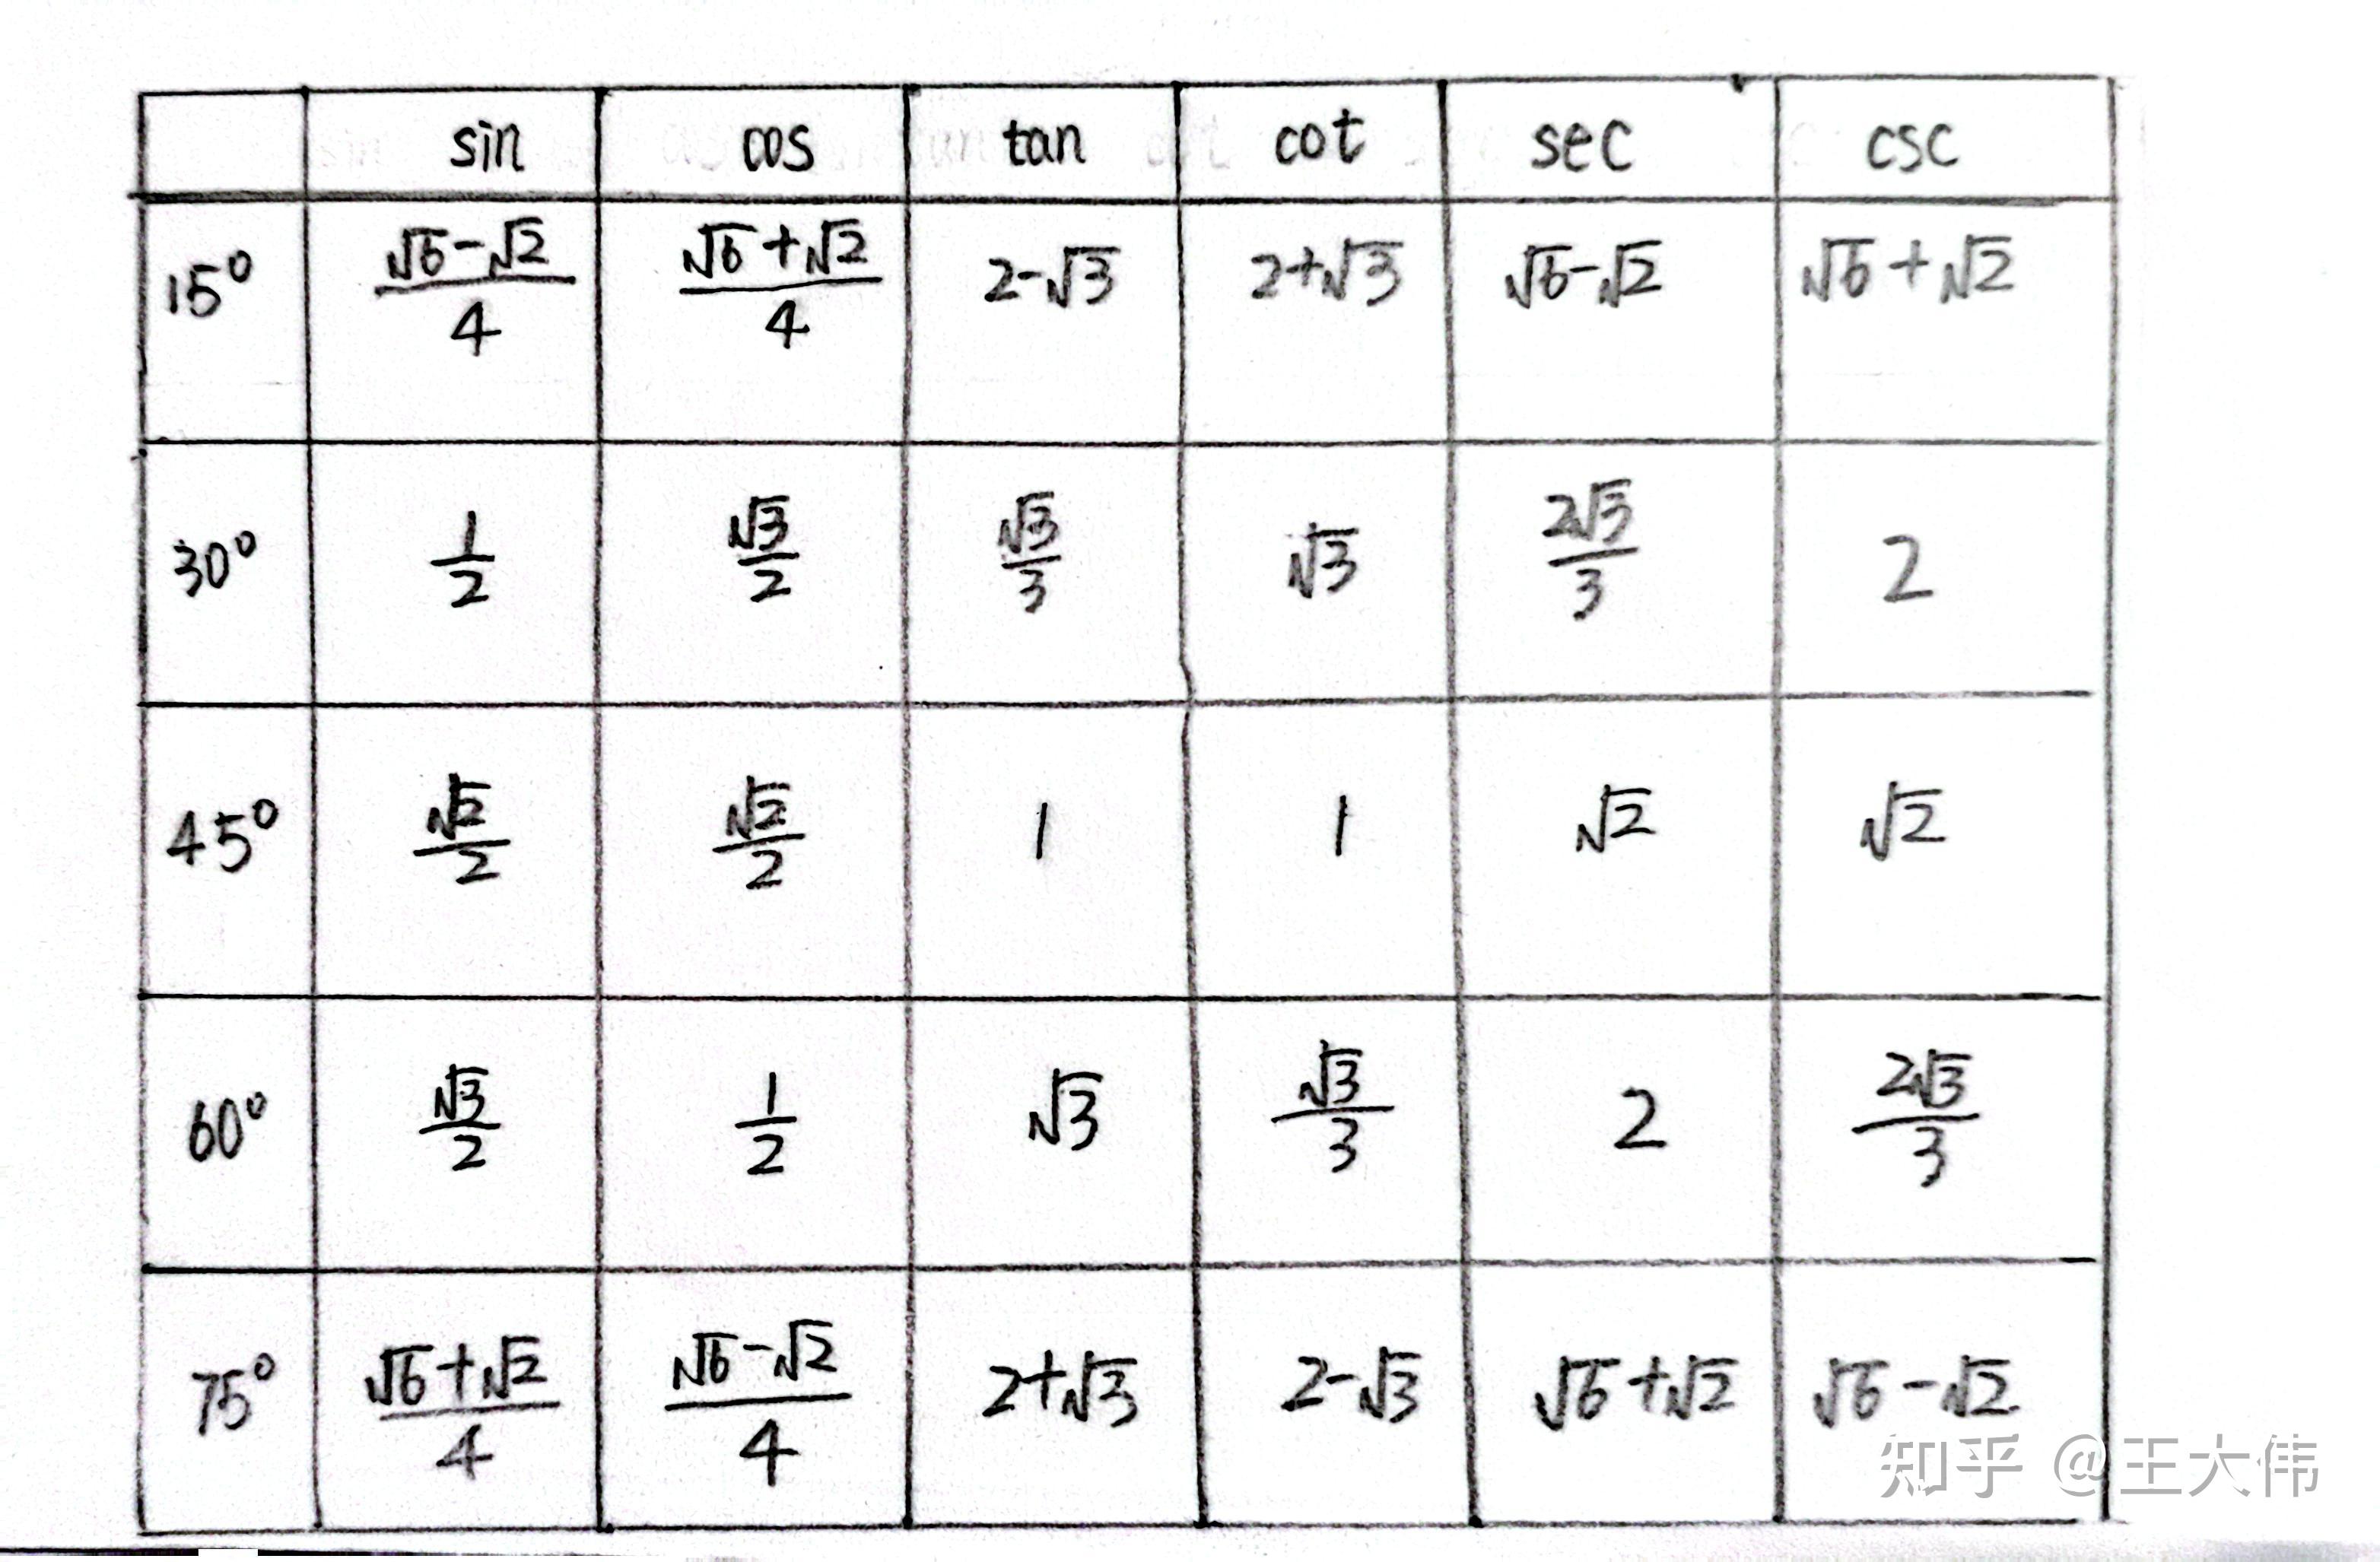 sin cos tan cot sec csc
15° (√6-√2)/4 (√6+√2)/4 2-√3 2+√3 √6-√2 √6+√2
30° 1/2 √3/2 √3/3 √3 2√3/3 2
45° √2/2 √2/2 1 1 √2 √2
60° √3/2 1/2 √3 √3/3 2 2√3/3
75° (√6+√2)/4 (√6-√2)/4 2+√3 2-√3 √6+√2 √6-√2
知乎 @王大伟